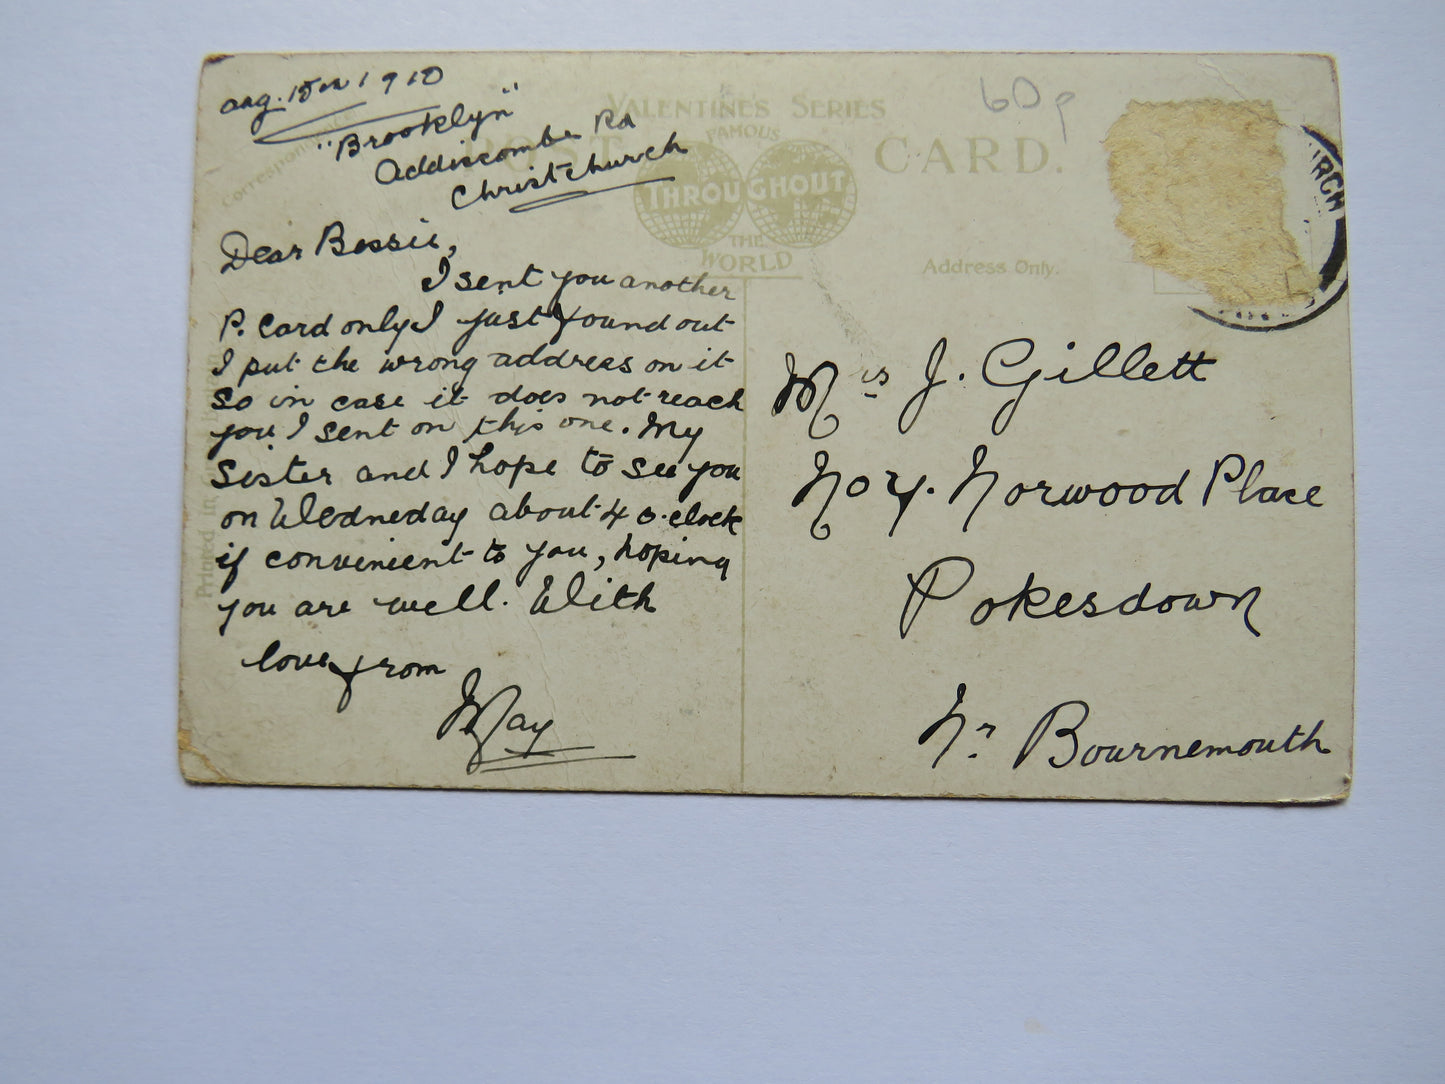 Aug. 15th 1910
"Brooklyn"
Addiscombe Rd
Christchurch
Correspondence
Dear Bessie,
I sent you another
P. Card only I just found out
I put the wrong address on it
so in case it does not reach
you I sent on this one. My
Sister and I hope to see you
on Wedneday about 4 o.clock
if convenient to you, hoping
you are well. With
love from
May
Printed in
VALENTINES SERIES
POST CARD.
FAMOUS
THROUGHOUT
THE
WORLD
60p
Address Only.
URCH
Mrs J. Gillett
No 4. Norwood Place
Pokesdown
Nr Bournemouth